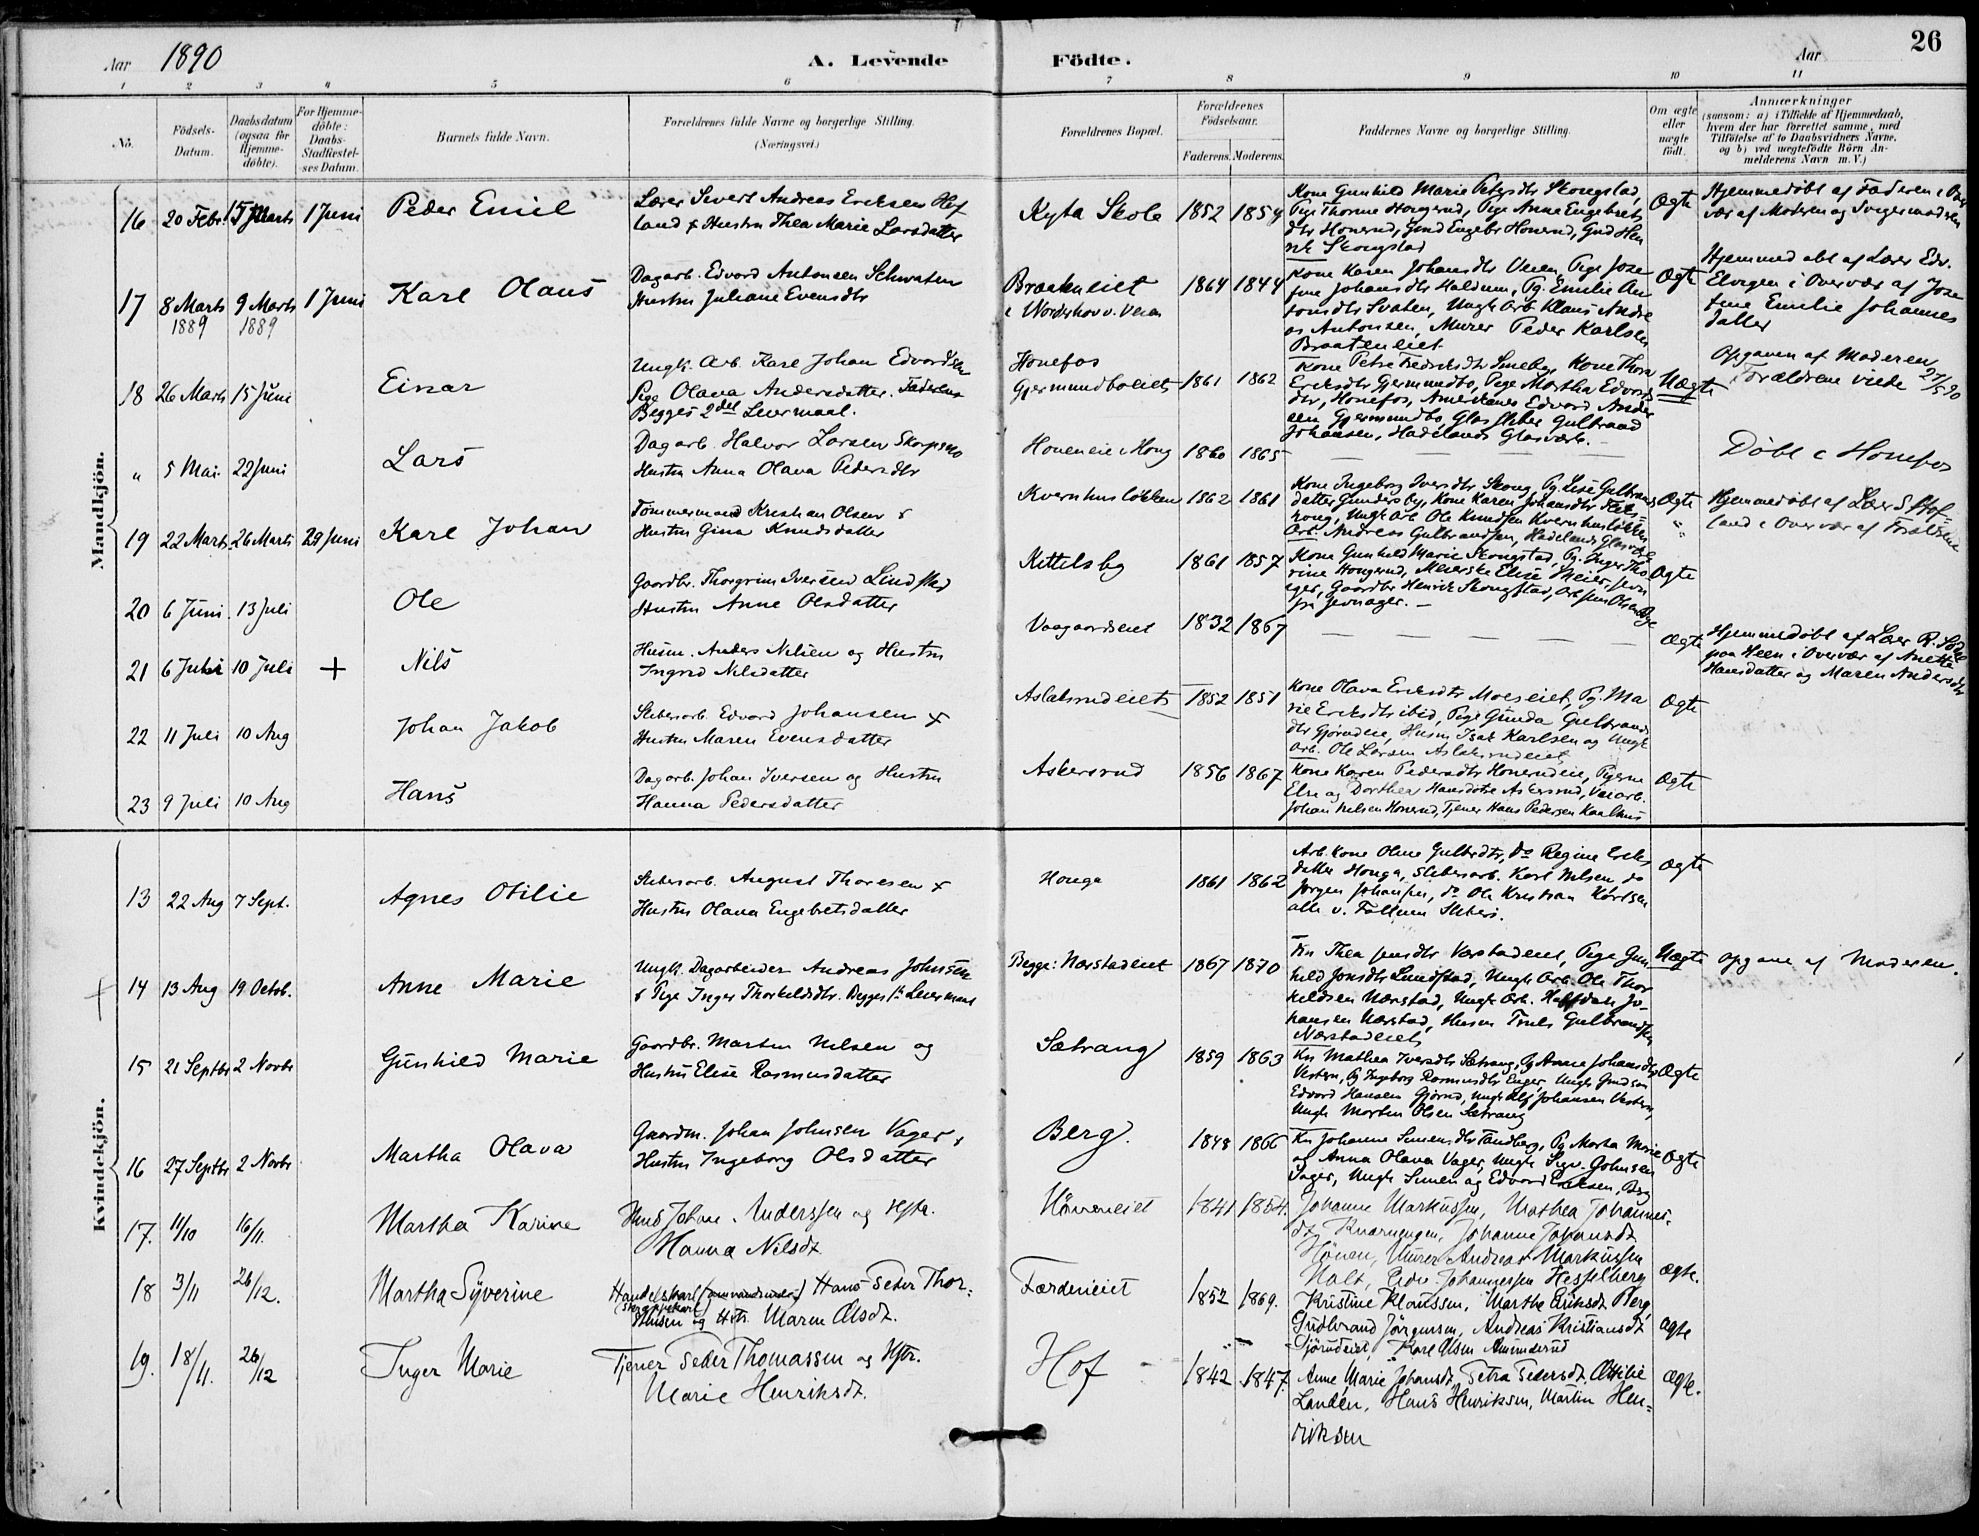 Aar 1890
A. Levende Födte.
Aar
26
1 2 3 4 5 6 7 8 9 10 11
No.
Födsels-Datum.
Daabsdatum (ogsaa for Hjemme-döbte).
For Hjemme-döbte: Daabs-Stadfæstel-ses Datum.
Barnets fulde Navn.
Forældrenes fulde Navne og borgerlige Stilling.
(Næringsvei.)
Forældrenes Bopæl.
Forældrenes Födselsaar.
Faderens. Moderens.
Faddernes Navne og borgerlige Stilling.
Om ægte eller uægte født.
Anmærkninger
(saasom: a) i Tilfælde af Hjemmedaab,
hvem der har forrettet samme, med
Tilföielse af to Daabsvidners Navne,
og b) ved uægtefödte Börn An-
melderens Navn m. V.)
Mandkjön.
16 20 Febr. 15 Marts 1 Juni Peder Emil
Lærer Sivert Andreas Ericksen Hof
land & Hustru Thea Marie Larsdatter
Kyta Skole 1852 1854
Kone Gunhild Marie Petersdtr Skongstad,
Pige Thorine Hougerud, Pige Anne Engebrets
dtr Honerud, Gmd Engebr Honerud, Gmd Hen
rik Skongstad
Ægte
Hjemmedöbt af Faderen i Over
vær af Moderen og Svigermoderen
17 8 Marts 1889 9 Marts 1889 1 Juni Karl Olaus
Dagarb. Edvard Antonsen Schvaten
Hustru Juliane Evensdtr
Braateneiet
i Norderhov v. Veien
1864 1844
Kone Karen Johansdtr Veien, Pige Jose
fine Johansdtr Haldum, Pg. Emilie An
tonsdtr Svaten, Ungk Arb Klaus Andre
as Antonsen, Murer Peder Karlsen
Braateneiet
Ægte
Hjemmedöbt af Lærer Edv.
Elvigen i Overvær af Jose
fine Emilie Johannes
datter
18 26 Marts 15 Juni Einar
Ungk. Arb. Karl Johan Edvardsen
Pige Olava Andersdatter. Faderens
Begges 2det Leiermaal.
Honefos
Gjermundboeiet 1861 1862
Kone Petra Fredriksdtr Smeby, Kone Thora
Ericksdtr Germundbo, Pige Martha Edvards
dtr, Honefos, Amerikaner Edvard Ander
sen Gjermundbo, Glassliber Gulbrand
Johansen, Hadelands Glasværk.
Uægte
Opgaven af Moderen
Forældrene viede 27/5 90
" 5 Mai 22 Juni Lars
Dagarb. Halvor Larsen Skarpsno
Hustru Anna Olava Pedersdtr
Honeneie i Houg 1860 1865
Döbt i Honefos
19 22 Marts 26 Marts 29 Juni Karl Johan
Tömmermand Kristian Olsen &
Hustru Gina Knudsdatter
Kvernhuslökken 1862 1861
Kone Ingeborg Iversdtr Skong, Pg. Lise Gulbrands
datter Gundersby, Kone Karen Johansdtr
Ungk Arb Ole Knudsen Kvernhuslökken
Arb. Andreas Gulbrandsen, Hadelands Glasværk
Ægte "
Hjemmedöbt af Lærer S Hof-
land i Overvær af Forældrene
20 6 Juni 13 Juli Ole
Gaardbr. Thorgrim Iversen Lindstad
Hustru Anne Olsdatter
Kittelsby 1861 1857
Kone Gunhild Marie Skongstad, Pg. Inger Tho
rine Hougerud, Meierske Elise Meier, Jevn
ager, Gaardbr Henrik Skongstad, Arb Jens Olsen
fra Jevnager.
Ægte
21 6 Juli 10 Juli + Nils
Husm. Anders Nilsen og Hustru
Ingrid Nilsdatter
Vaagaardseiet 1832 1867
Ægte
Hjemmedöbt af Lær R.
paa Heen i Overvær af Anette
Hansdatter og Maren Andersdtr
22 11 Juli 10 Aug Johan Jakob
Sliberiarb. Edvard Johansen &
Hustru Maren Evensdatter
Aslaksrudeiet 1852 1851
Kone Olava Ericksdtr Moeseiet, Pg. Ma
rie Ericksdtr ibid, Pige Gunda Gulbrands
dtr Gjörudeie, Husm Isak Karlsen og Ungk
Arb. Ole Larsen Aslaksrudeiet
Ægte
23 9 Juli 10 Aug Hans
Dagarb. Johan Iversen og Hustru
Hanna Pedersdatter
Askersrud 1856 1867
Kone Karen Pedersdtr Honerudeie, Pigerne
Else og Dorthea Hansdötre Askersrud, Veiarb.
Johan Nilsen Honerud, Tjener Hans Pedersen Kaalhus
Ægte
Kvindekjön.
13 22 Aug 7 Sept. Agnes Otilie
Sliberiarb. August Thoresen &
Hustru Olava Engebretsdatter
Honga 1861 1862
Arb. Kone Oline Gulbrdtr, do Regine Ericks
datter Honga, Sliberiarb. Karl Nilsen do
Jörgen Johansen, do Ole Kristian
alle v. Follum Sliberi.
Ægte
14 13 Aug 19 Octob. Anne Marie
Ungk. Dagarbeider Andreas Johnsen
& Pige Inger Thorkildsdtr. Begges 1te Leiermaal
Begge: Nærstadeiet 1867 1870
Kn Thea Jensdtr Værstadeiet, Pige Gun
hild Jonsdtr Lundstad, Ungk Arb. Ole Thor
kildsen Nærstad, Ungk Arb. Halfdan Jo-
hansen Nærstad, Husm Truls Gulbrandsen
Nærstadeiet
Uægte
Opgave af Moderen.
15 21 Septbr 2 Novbr Gunhild Marie
Gaardbr. Martin Nilsen og
Hustru Elise Rasmusdatter
Sætrang 1859 1863
Kn Mathea Iversdtr Sætrang, Pg Anne Johansdtr
Vestern, Pg Ingeborg Rasmusdtr Enger, Ungk Gmdsön
Edvard Hansen Gjörud, Ungk Alf Johansen Vestern,
Ungk Martin Olsen Sætrang
Ægte
16 27 Septbr 2 Novbr Martha Olava
Gaardm. Johan Johnsen Vager &
Hustru Ingeborg Olsdatter
Berg. 1848 1866
Kn Johanne Simensdtr Tandberg, Pg Marta Marie
og Anna Olava Vager, Ungk Sigv. Johnsen
Vager, Ungk Simen og Edvard Eriksen, Berg
Ægte
17. 11/10 16/11. Martha Karine
Hmd Johan. Anderssen og Hstr.
Hanna Nilsdt.
Hönneneiet 1841 1854.
Johanne Markussen, Mathea Johannes-
dt, Johanne Johansdt
Hönen, Murer Andreas Markussen
Holt, Peder Johannessen Hesselberg
Ægte.
18 3/11 26/12. Martha Syverine
Handelskarl Hans Peder Thor-
(Skræppekarl)
sthusen og Hstr. Maren Olsdt.
Færdeneiet 1852 1869.
Kristine Klaussen, Marthe Eriksdt Berg,
Gudbrand Jörgensen, Andreas Kristiansdt
Gjörudeiet, Karl Olsen Amundsrud
Ægte
19. 18/11. 26/12 Inger Marie
Tjener Peder Thomassen og Hstr.
Marie Henriksdt.
Hof 1842 1847.
Anne Marie Johansdt, Petra Pedersdt, Ottilie
Landén, Hans Henriksen, Martin Hen-
riksen
Ægte.